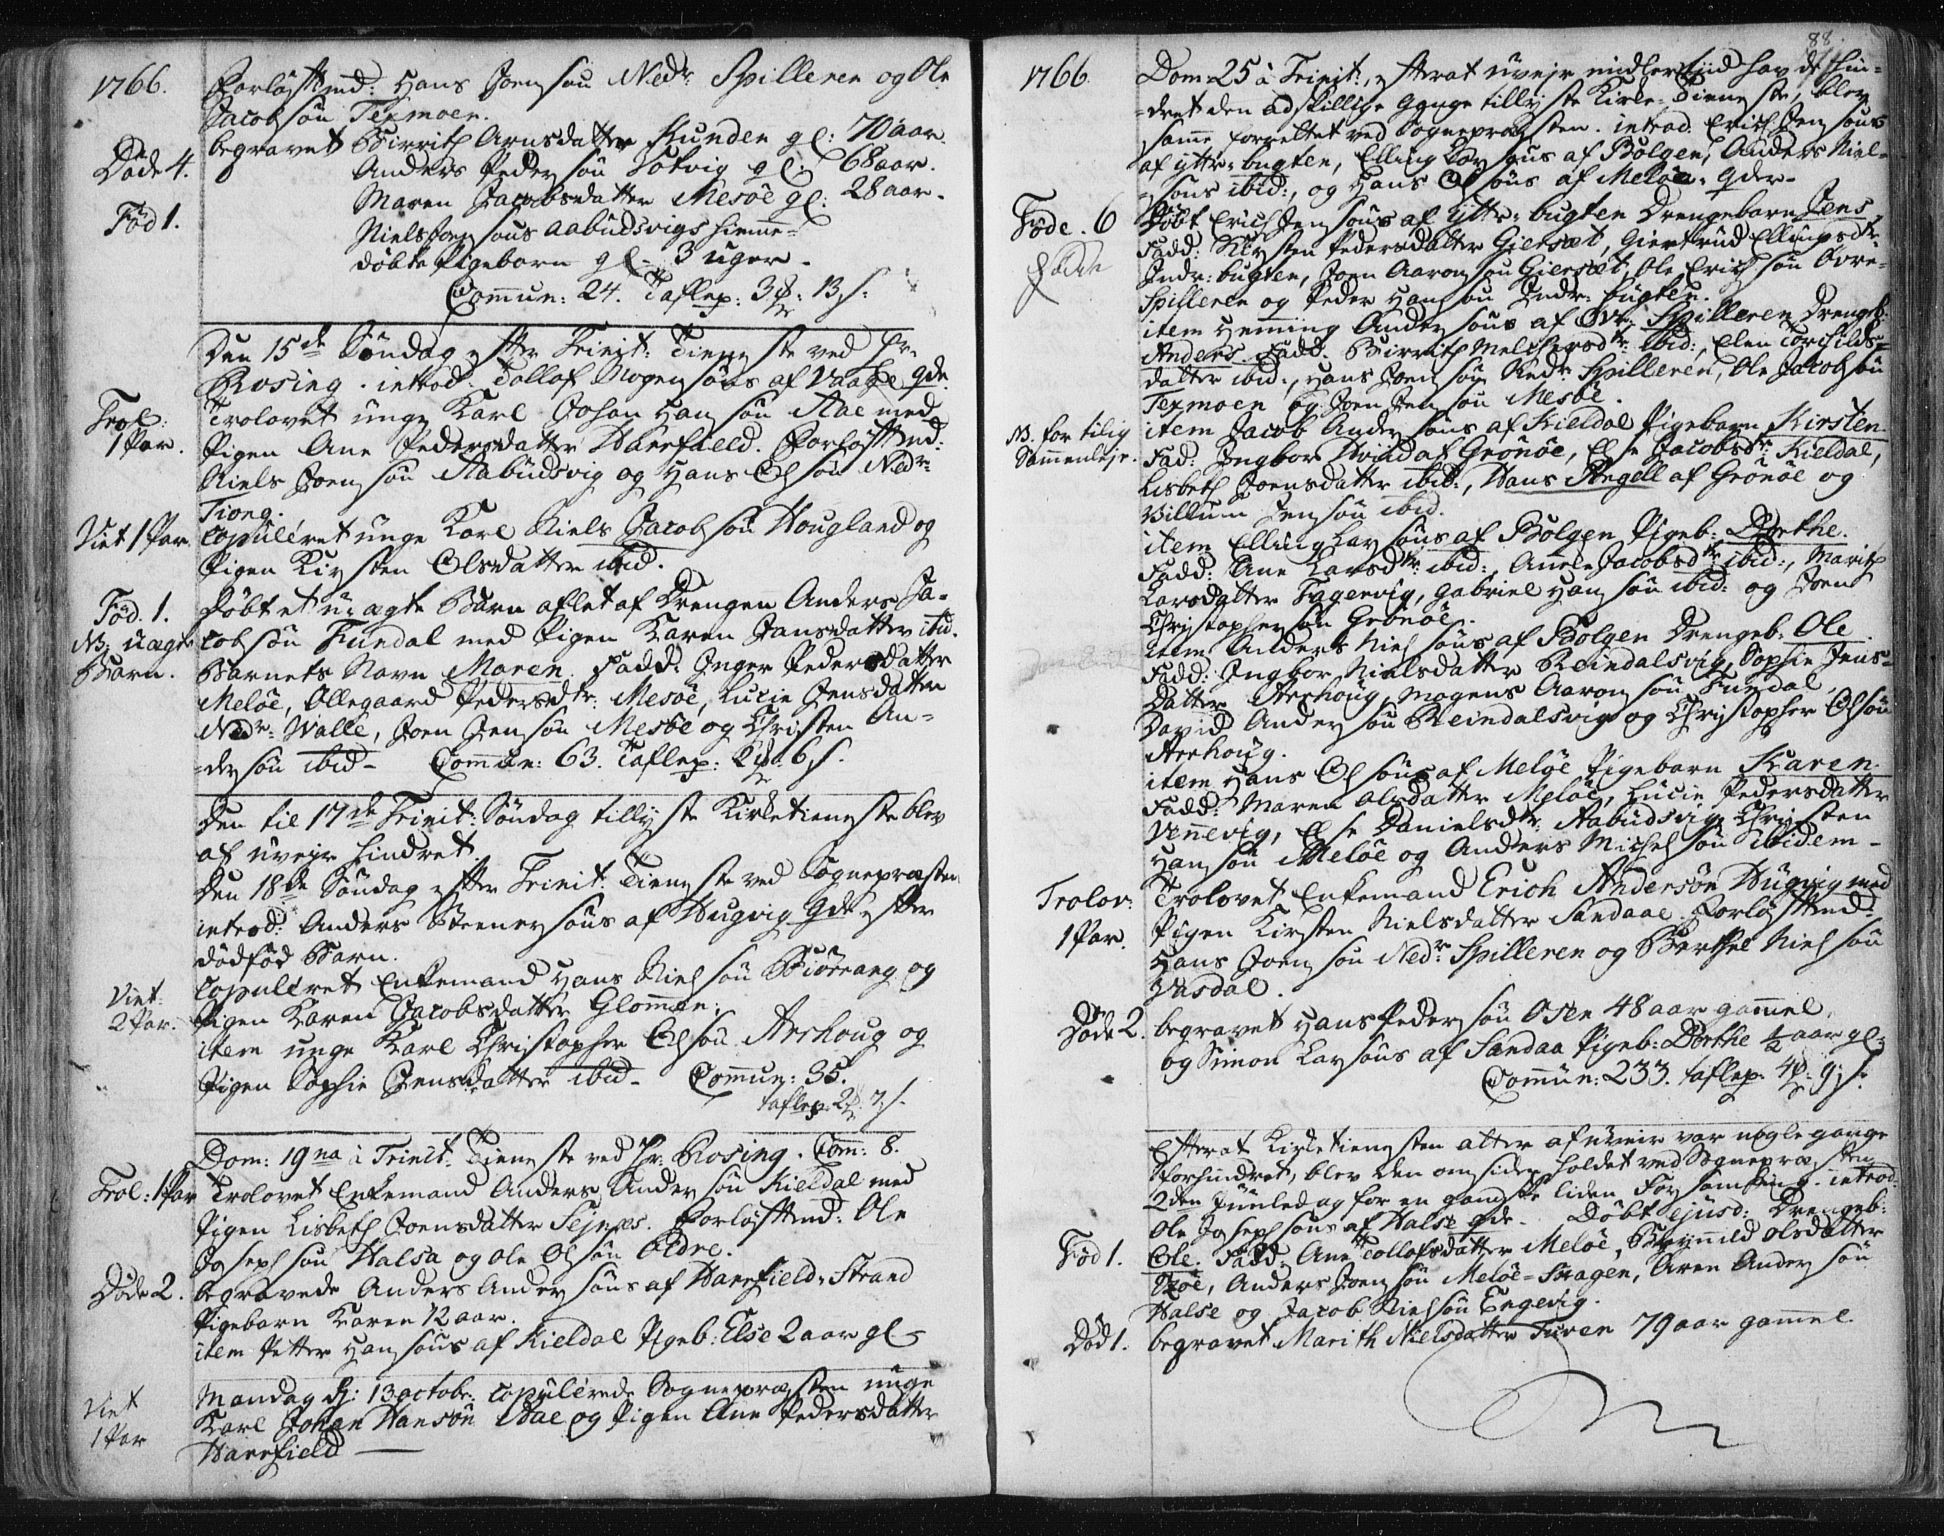 1766.
Forløftsmd: Hans Joensøn Nedr Spilleren og Ole
Jacobsøn Texmoen.
Døde 4.
begravet Birrith Arnsdatter Kunden gl: 70 aar.
Anders Pedersøn Sotvig gl: 68 aar.
Maren Jacobsdatter Mesøe gl: 28 aar.
Fød 1.
Niels Joensøns Aabudsvigs hiemme-
døbte Pigebarn gl- 3 uger.
Commun: 24. Taflep: 3 : 13 s.
Den 15de Søndag efter Trinit: Tieneste ved Hr.
Rosing. introd. Tollof Mogensøns af Vaage qde.
Trol:
1 Par.
Trolovet unge Karl Johan Hansøn Aae med
Pigen Ane Pedersdatter Harefield. Forløftsmd:
Niels Joensøn Aabudsvig og Hans Olsøn Nedr
Tiong.
Viet 1 Par.
Copuleret unge Karl Niels Jacobsøn Hougland og
Pigen Kirsten Olsdatter ibid.
Fød. 1.
NB. uægte
Barn.
Døbt et uægte Barn aflet af Drengen Anders Ja-
cobsøn Fundal med Pigen Karen Jansdatter ibd.
Barnets Navn Maren. Fadd: Inger Pedersdatter
Meløe, Ollegaard Pedersdtr: Mesøe, Lucie Jensdatter
Nedr: Walle, Joen Jensøn Mesøe og Christen An-
dersøn ibid- Commun: 63. Taflep: 2 . 6 s.
Den til 17de Trinit: Søndag tillyste Kirketieneste blev
af uveir hindret.
Den 18de Søndag efter Trinit: Tieneste ved Sognepræsten
introd: Anders Steenersøns af Hugvig qde efter
dødfød Barn.
Viet:
2 Par.
Copuleret Enkemand Hans Nielsøn Biørnang og
Pigen Karen Jacobsdatter Glommen.
item unge Karl Christopher Olsøn Arehoug og
Pigen Sophie Jensdatter ibid- Commun: 35.
taflep: 2 : 7 s.
Dom: 19na à Trinit: Tieneste ved Hr: Rosing. Com: 8.
Trol: 1 Par
Trolovet Enkemand Anders Andersøn Kieldal med
Pigen Lisbeth Joensdatter Sejnæs. Forløftsmd: Ole
Josephsøn Halsa og Ole Olsøn Oldre.
Døde 2.
begravede Anders Andersøns af Harefield-Strand
Pigebarn Karen 12 aar.
item Petter Hansøns af Kieldal Pigeb: Else 2 aar gl-
Viet
1 Par
Mandag d: 13 octobr: copulerede Sognepræsten unge
Karl Johan Hansøn Aae og Pigen Ane Pedersdatter
Harefield
88.
1766.
Dom 25 à Trinit:, efterat uveir midlertiid havde hin-
dret den adskillige Gange tillyste Kirke-Tieneste, blev
samme forrettet ved Sognepræsten. introd. Erich Jensøns
af ytter-bugten, Elling Larsøns af Bolgen, Anders Niel-
søns ibid:, og Hans Olsøns af Meløe: qder-
Føde. 6
Døbt Erich Jensøns af Ytter-bugten Drengebarn Jens
Fadd: Kirsten Pedersdatter Gierset, Giertrud Ellingsdtr
Indr: bugten, Joen Aaronsøn Gierset, Ole Erichsøn Øvre-
Spilleren og Peder Hansøn Indr: bugten.
item Henning Andersøns af Øvr. Spilleren Drengeb:
Anders. Fadd. Birrith Melchersdtr: ibid:, Elen Torchilds-
datter ibid:, Hans Joensøn Nedr Spilleren, Ole Jacobsøn
Texmoen og Joen Jensøn Mesøe.
NB. for tilig
Sammenleje.
item Jacob Andersøns af Kieldal Pigebarn Kirsten
Fad: Ingbor Hvid af Grønøe, Else Jacobsdtr: Kieldal,
Lisbeth Joensdatter ibid:, Hans Angell af Grønøe og
Villum Jensøn ibid.
item Elling Larsøns af Bolgen Pigeb: Dorthe.
Fadd: Ane Larsdtr: ibid:, Anne Jacobsdtr: ibid:, Marith
Larsdatter Fagervig, Gabriel Hansøn ibid: og Joen
Christophersøn Grønøe.
item Anders Nielsøns af Bolgen Drengeb: Ole
Fadd: Ingbor Nielsdatter Reindalsvig, Sophie Jens-
datter Arehoug, Mogens Aaronsøn Fundal,
David Andersøn Reindalsvig og Christopher Olsøn
Arehoug.
item Hans Olsøns af Meløe Pigebarn Karen.
Fadd: Maren Olsdatter Meløe, Lucie Pedersdatter
Vennevig, Else Danielsdtr: Aabudsvig, Christen
Hansøn Meløe og Anders Michelsøn ibidem-
Trolov:
1 Par.
Trolovet Enkemand Erich Andersøn Hugvig med
Pigen Kirsten Nielsdatter Sandaae. Forløftsmd:
Hans Joensøn Nedr Spilleren og Berthel Nielsøn
Vasdal.
Døde 2.
begravet Hans Pedersøn Osen 48 aar gammel.
og Simon Larsøns af Sandaa Pigeb: Dorthe ½ aar gl-
Commun: 233. taflep: 4 : 9 s.
Efterat Kirketienesten atter af uveir var nogle gange
forhindret, blev den omsider holdet ved Sognepræsten
2den Juuledag for en ganske liden Forsamling. introd:
Ole Josephsøns af Halse qde- Døbt ejusd: Drengeb:
Fød 1.
Ole. Fadd: Ane Tollofsdatter Meløe, Brynnild Olsdatter
Anders Joensøn Meløe-Skagen, Aren Andersøn
Halse og Jacob Nielsøn Engevig.
Død 1.
begravet Marith Nielsdatter Furen 79 aar gammel.